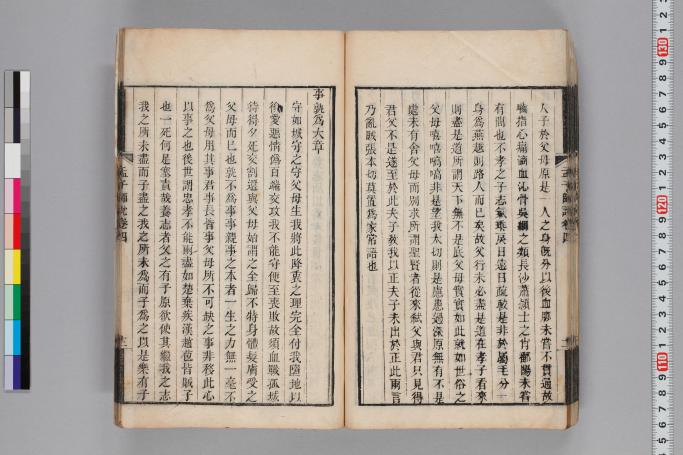 人子於父母原是一人之身旣分以後血脉未嘗不貫通故
嚙指心痛滴血沁骨吳綱之類長沙蕭穎士之肖鄱陽未嘗
有間也不孝之子志氣乖戾日遠日疎較是非於屬毛分一
身爲燕越則路人而已矣故父行未必盡是道在孝子看來
則盡是道所謂天下無不是底父母實實如此就如世俗之
父母嘻嘻嗃嗃非是望我太切則是慮患過深原無有不是
處未有舍父母而別求所謂聖賢者從來弑父與君只見得
君父不是遂至於此夫子敎我以正夫子未出於正此兩言
乃亂賊張本切莫置爲家常語也
事孰爲大章
守如城守之守父母生我將此降衷之理完全付我墮地以
後愛惡情僞百端交攻我不能守便至喪敗故須血戰孤城
待得夕死交割還與父母始謂之全歸不特身體髮膚受之
父母而已也孰不爲事事親事之本者一生之力無一毫不
爲父母用其事君事長皆事父母所不可缺之事非移此心
以事之也後世謂忠孝不能兩盡如楚棄疾漢趙苞皆賊子
也一死何足塞責哉養志者父之有子原欲使其繼我之志
我之所未盡而子盡之我之所未爲而子爲之以是樂有子
孟子師說卷四
孟子師說卷四